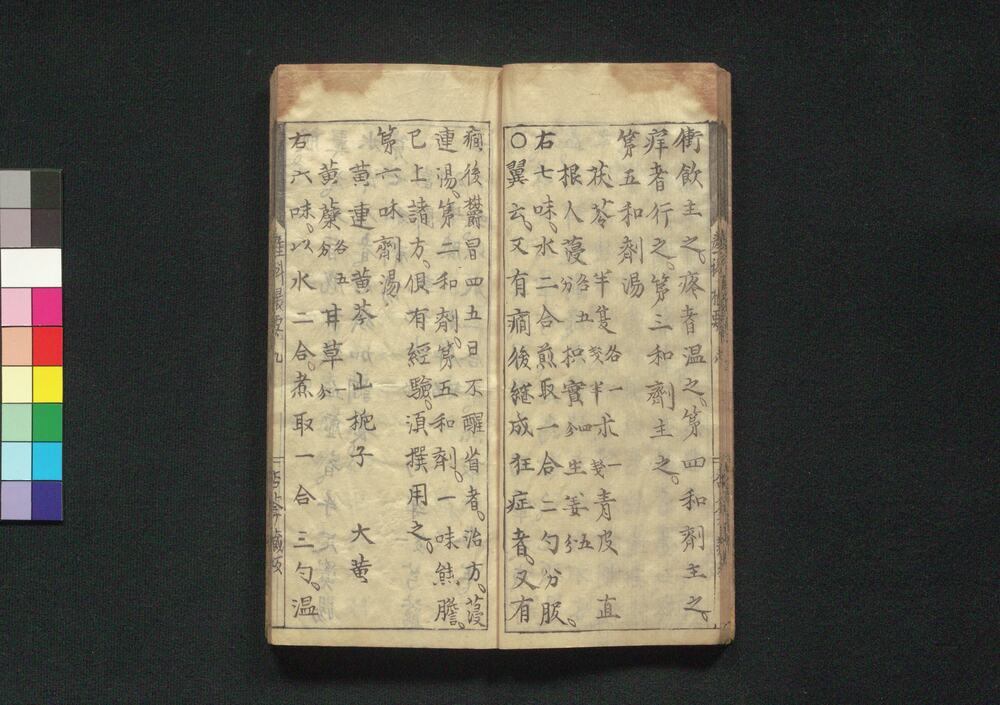 衝飲主之。疼者温之。第四和劑主之。
痒者行之。第三和劑主之。
第五和劑湯
茯苓 半夏各一錢半 朮一錢 青皮 直
根人 蔓各五分 枳實四分 生姜五分
右七味。水二合煎取一合二勺分服。
○翼云。又有癇後継成狂症者。又有
癇後欝冒四五日不醒省者。治方。蔓
連湯。第二和劑。第五和劑。一味熊膽。
已上諸方。俱有經驗。須撰用之。
第六味劑湯
黄連 黄芩 山梔子 大黄
黄蘗各五分 甘草一分
右六味。以水二合。煮取一合三勺。温
産科最要 九